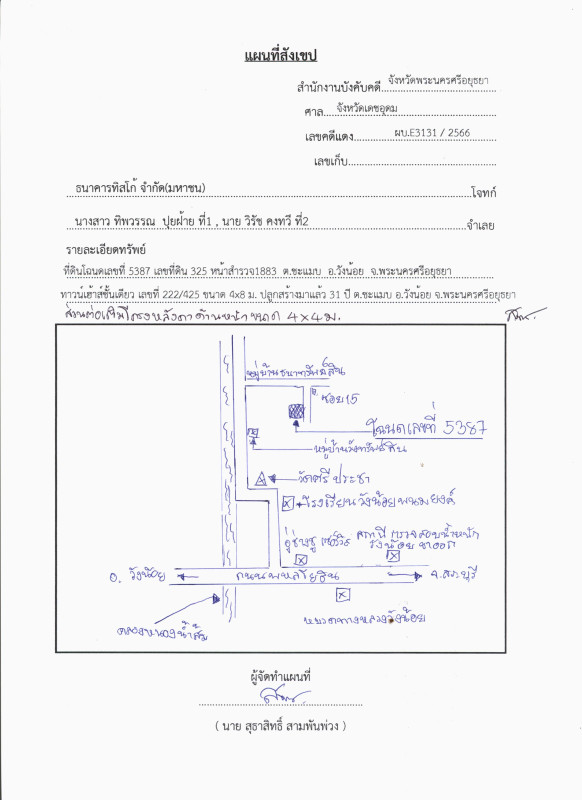 แผนที่สังเขป
สำนักงานบังคับคดี จังหวัดพระนครศรีอยุธยา
ศาล จังหวัดเดชอุดม
เลขคดีแดง ผบ.E3131 / 2566
เลขเก็บ
ธนาคารทิสโก้ จำกัด(มหาชน) โจทก์
นางสาว ทิพวรรณ ปุยฝ้าย ที่1 , นาย วิรัช คงทวี ที่2 จำเลย
รายละเอียดทรัพย์
ที่ดินโฉนดเลขที่ 5387 เลขที่ดิน 325 หน้าสำรวจ1883 ต.ชะแมบ อ.วังน้อย จ.พระนครศรีอยุธยา
ทาวน์เฮ้าส์ชั้นเดียว เลขที่ 222/425 ขนาด 4x8 ม. ปลูกสร้างมาแล้ว 31 ปี ต.ชะแมบ อ.วังน้อย จ.พระนครศรีอยุธยา
ส่วนต่อเติมโครงหลังคาด้านหน้าขนาด 4x4 ม.
หมู่บ้านธนาทรัพย์สิน
ซอย 15
โฉนดเลขที่ 5387
หมู่บ้านวังทรัพย์สิน
วัดศรีประชา
โรงเรียนวังน้อยพนมยงค์
อู่ช่างชู เซอร์วิส
สถานีตรวจสอบน้ำหนัก
วังน้อย ขาออก
อ. วังน้อย
ถนนพหลโยธิน
จ.สระบุรี
คลองหนองน้ำส้ม
หมวดทางหลวงวังน้อย
ผู้จัดทำแผนที่
( นาย สุธาสิทธิ์ สามพันพ่วง )